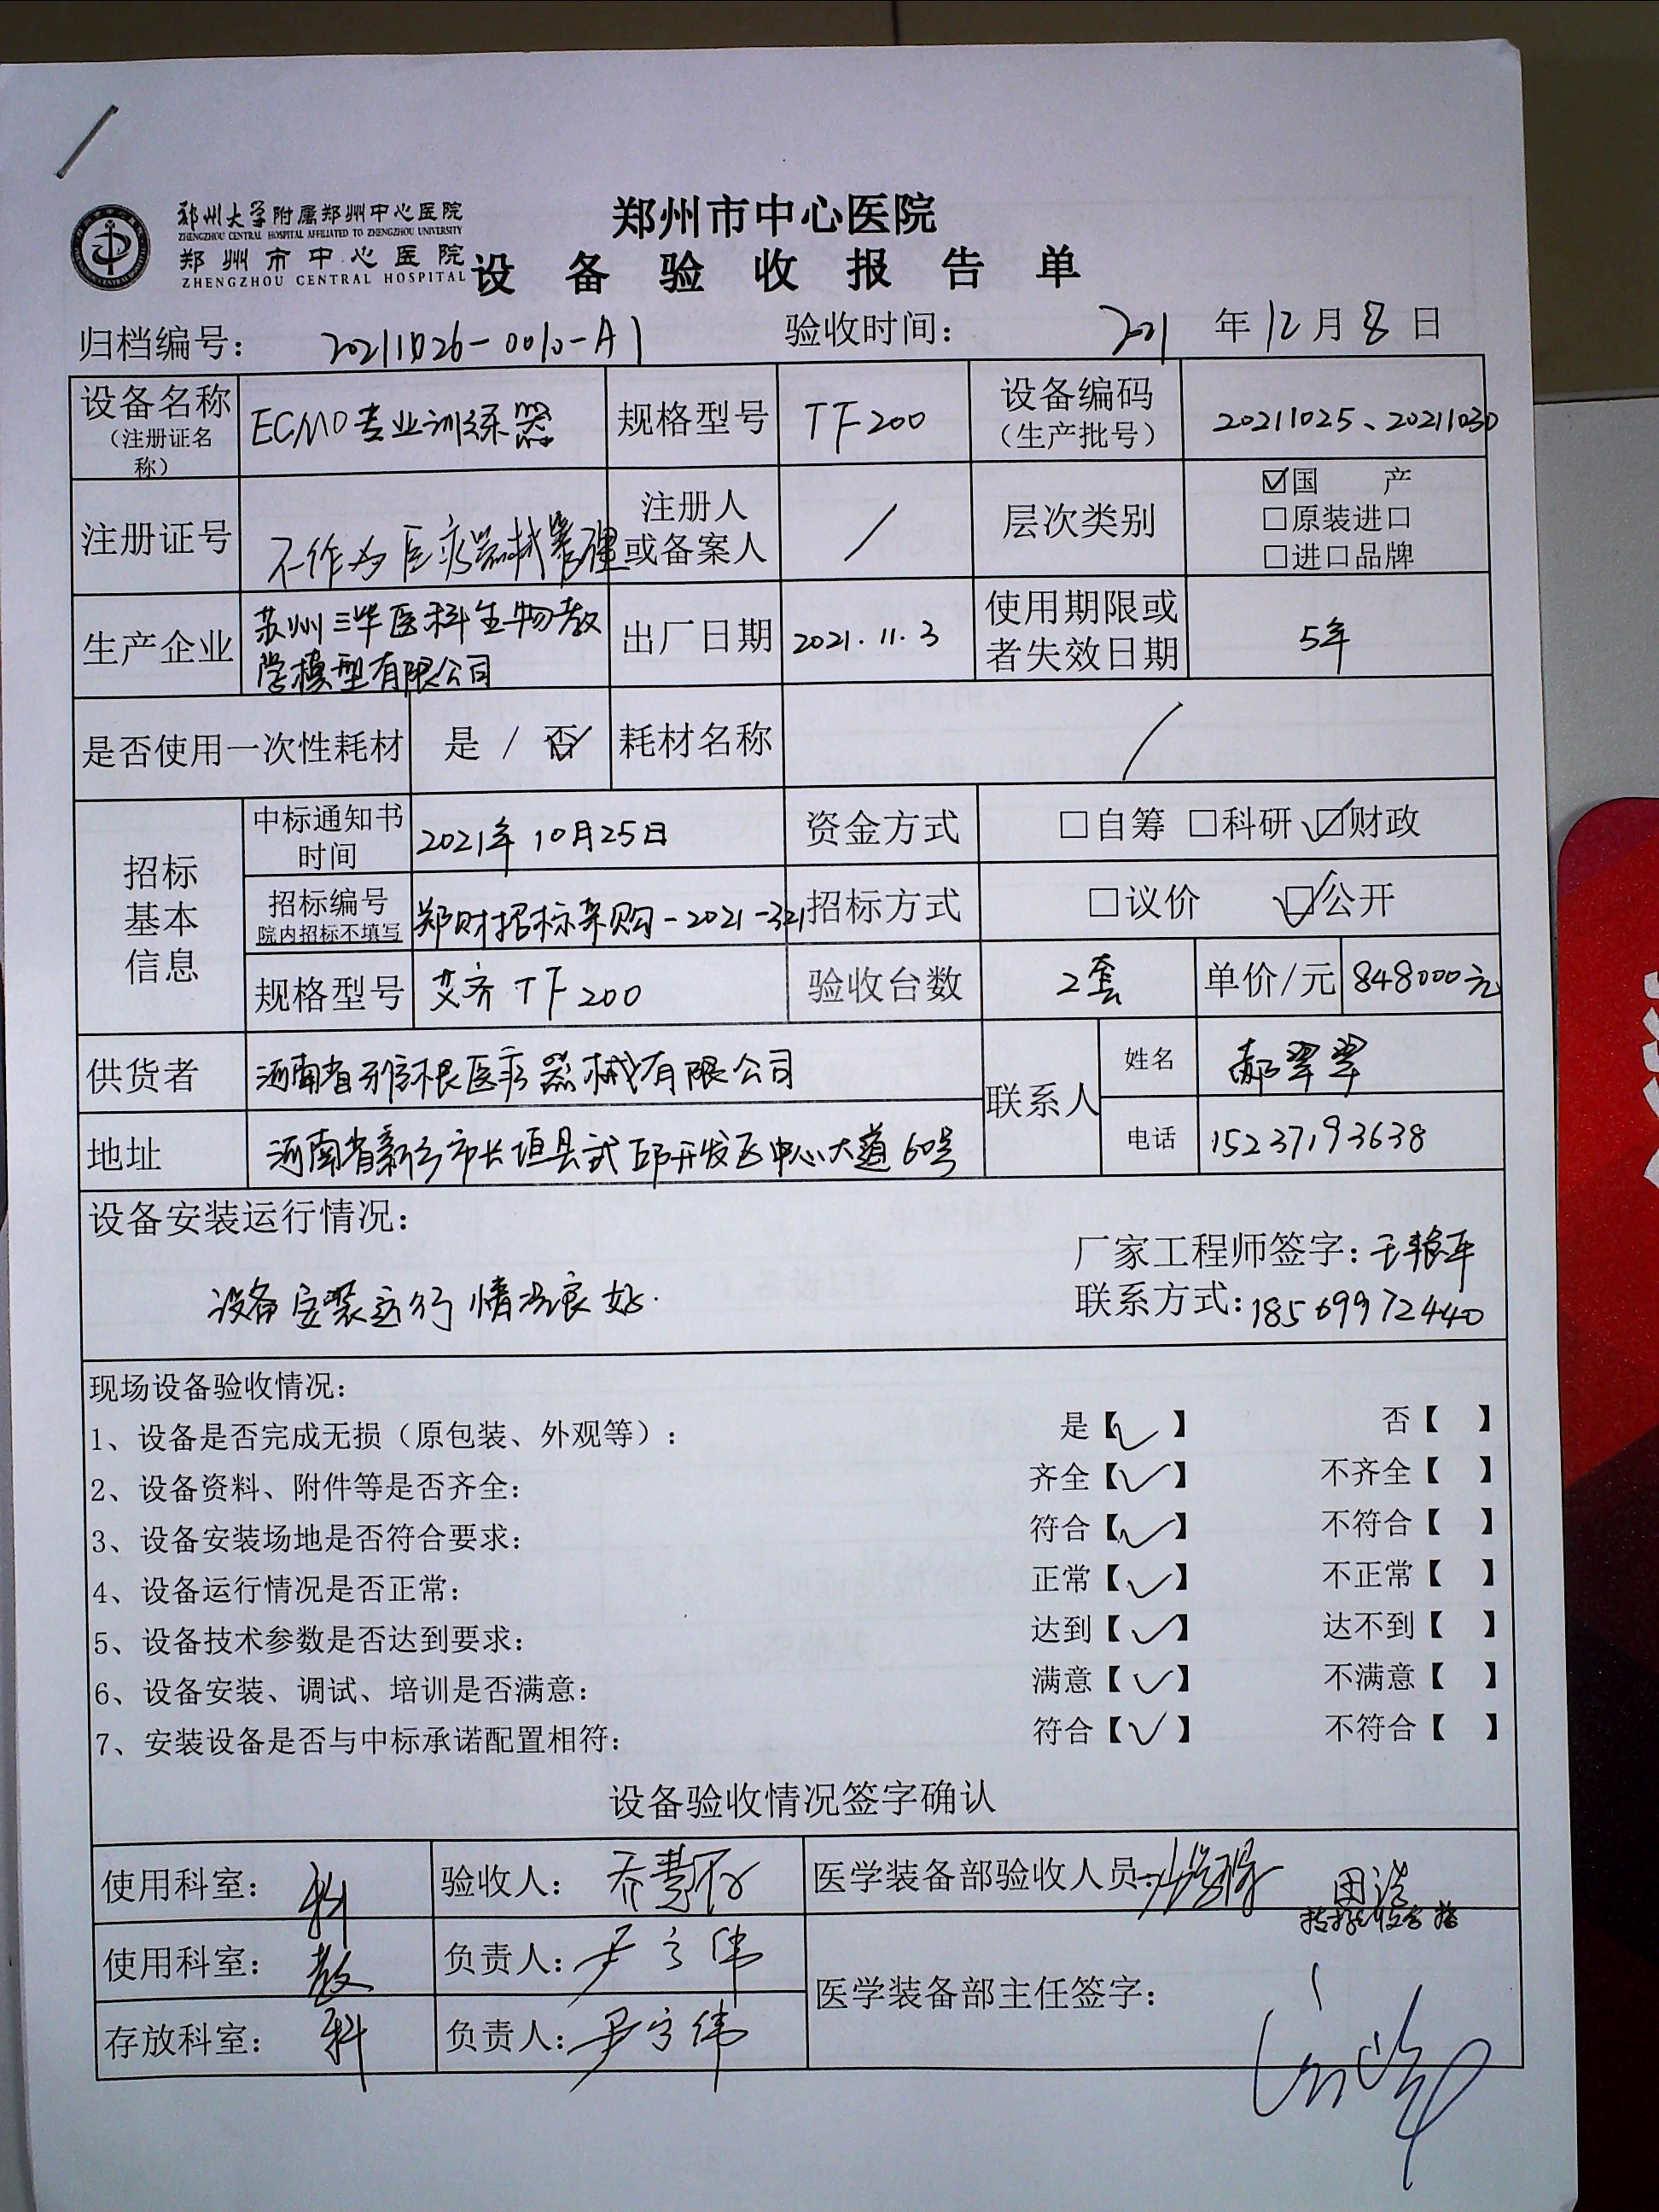 郑州大学附属郑州中心医院
ZHENGZHOU CENTRAL HOSPITAL AFFILIATED TO ZHENGZHOU UNIVERSITY
郑州市中心医院
ZHENGZHOU CENTRAL HOSPITAL
郑州市中心医院
设备验收报告单
归档编号: 20211026-0010-A1 验收时间: 2021 年 12 月 8 日
设备名称(注册证名称) ECMO专业训练器 规格型号 TF200 设备编码(生产批号) 20211025、20211030
注册证号 不作为医疗器械管理 注册人或备案人 / 层次类别 ☑国产 □原装进口 □进口品牌
生产企业 苏州三华医科生物教学模型有限公司 出厂日期 2021.11.3 使用期限或者失效日期 5年
是否使用一次性耗材 是 / 否✓ 耗材名称 /
招标基本信息
中标通知书时间 2021年10月25日 资金方式 □自筹 □科研 ☑财政
招标编号 院内招标不填写 郑财招标采购-2021-321 招标方式 □议价 ☑公开
规格型号 艾齐TF200 验收台数 2套 单价/元 848000元
供货者 河南省雅根医疗器械有限公司 联系人 姓名 郝翠翠
地址 河南省新乡市长垣县武邱开发区中心大道60号 电话 15237193638
设备安装运行情况:
设备安装运行情况良好.
厂家工程师签字:
联系方式: 18569972440
现场设备验收情况:
1、设备是否完成无损(原包装、外观等): 是【✓】 否【 】
2、设备资料、附件等是否齐全: 齐全【✓】 不齐全【 】
3、设备安装场地是否符合要求: 符合【✓】 不符合【 】
4、设备运行情况是否正常: 正常【✓】 不正常【 】
5、设备技术参数是否达到要求: 达到【✓】 达不到【 】
6、设备安装、调试、培训是否满意: 满意【✓】 不满意【 】
7、安装设备是否与中标承诺配置相符: 符合【✓】 不符合【 】
设备验收情况签字确认
使用科室: 科 验收人: 医学装备部验收人员:
使用科室: 教 负责人: 尹宗伟
存放科室: 科 负责人: 尹宗伟
医学装备部主任签字: